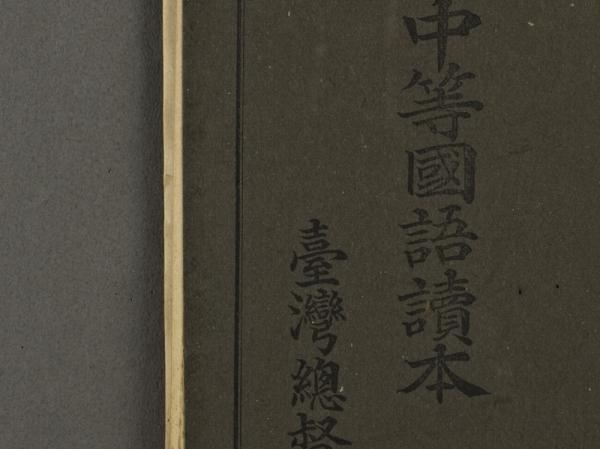 中等國語讀本
臺灣總督